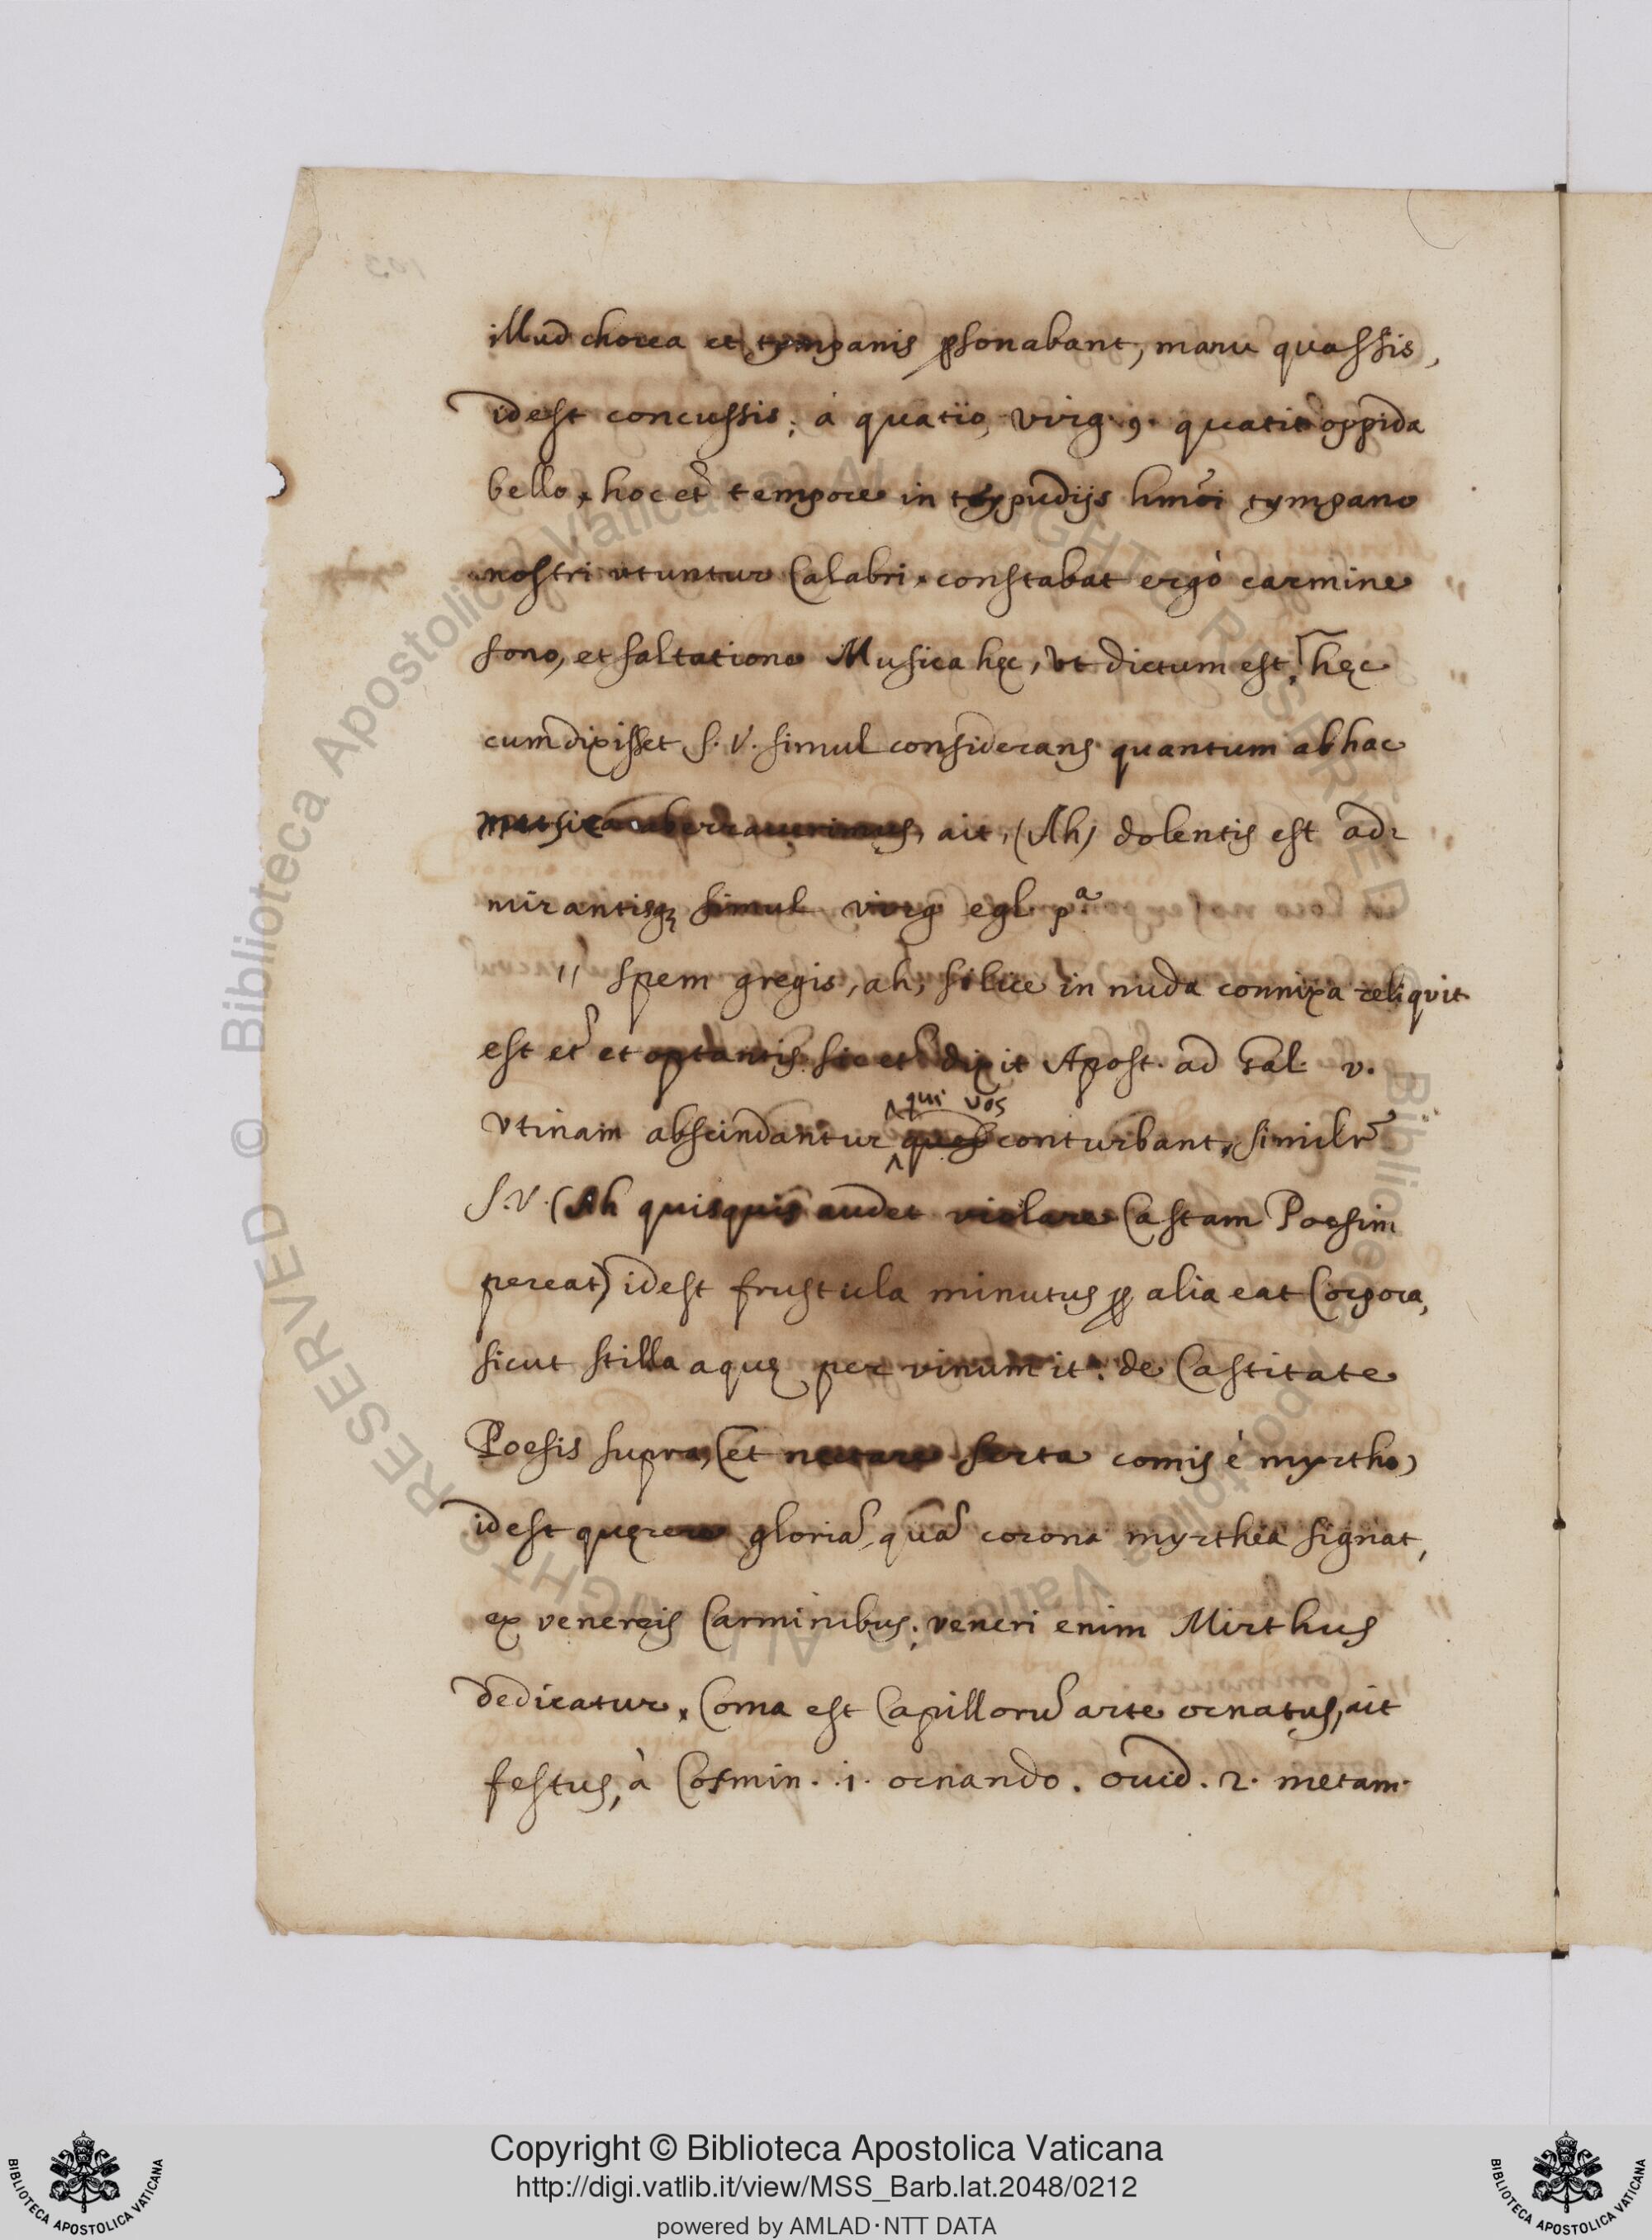 illud chorea et tympanis ꝑsonabant, manu quassis,
idest concussis; à quatio, virg. 9. quatit oppida
bello, hoc et̃ tempore in trypudijs hmõi tympano
nostri utuntur Calabri, constabat ergò carmine
sono, et saltatione Musica hęc, vt dictum est. hęc
cum dixisset S. V. simul considerans quantum ab hac
musica aberrauerimus, ait, (Ah) dolentis est ad-
mirantisq; simul virg egl. pª
" spem gregis, ah, silice in nuda connixa reliquit
est et̃ et optantis sic et̃ dixit Apost. ad Gal. v.
qui vos
vtinam abscindantur conturbant, similr̃
S. V. (Ah quisquis audet violare Castam Poesim
pereat) idest frustula minutus ꝑ alia eat Corpora,
sicut stilla aquę per vinum it. de Castitate
Poesis supra, (et nectare serta comis è myrtho)
idest quęrere gloriã, quã corona myrthea signat,
ex venereis Carminibus; veneri enim Mirthus
dedicatur, Coma est Capillorũ arte ornatus, ait
festus, à Cosmin. .i. ornando. ouid. 2. metam.
Copyright © Biblioteca Apostolica Vaticana
http://digi.vatlib.it/view/MSS_Barb.lat.2048/0212
powered by AMLAD·NTT DATA
BIBLIOTECA APOSTOLICA VATICANA
BIBLIOTECA APOSTOLICA VATICANA